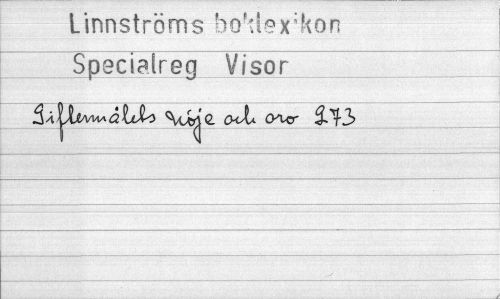 Linnströms boklexikon
Specialreg Visor
Giftermålets nöje och oro 273